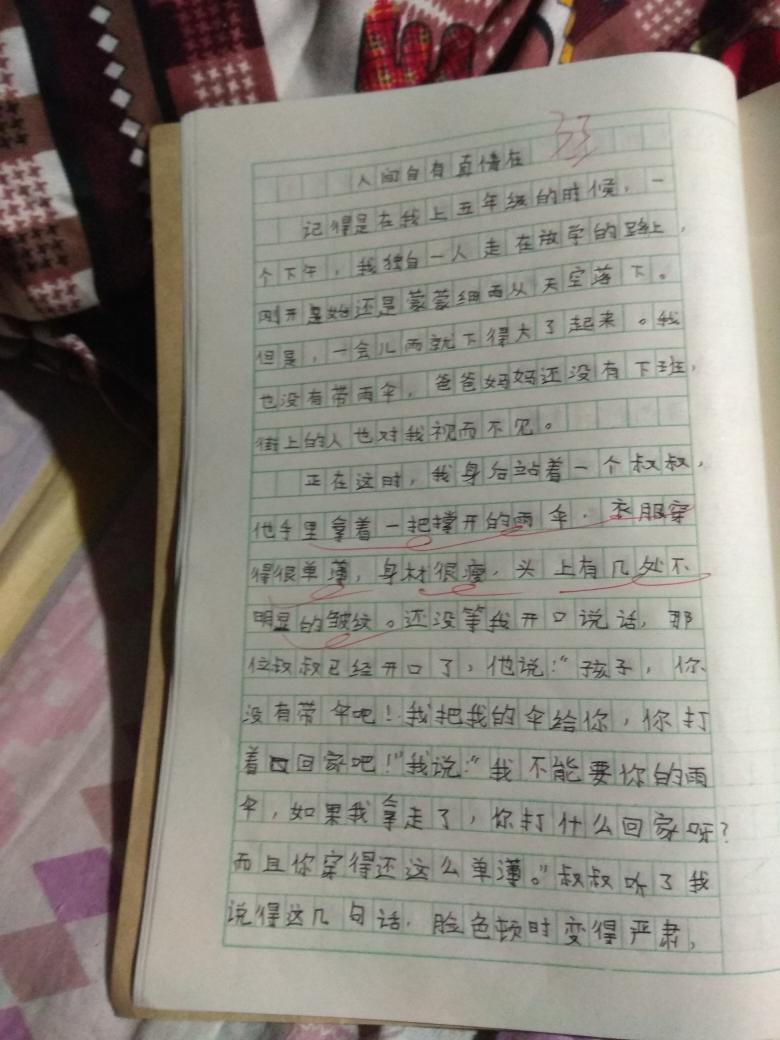 33
人间自有真情在
记得是在我上五年级的时候,一
个下午,我独自一人走在放学的路上,
刚开始还是蒙蒙细雨从天空落下。
但是,一会儿雨就下得大了起来。我
也没有带雨伞,爸爸妈妈还没有下班,
街上的人也对我视而不见。
正在这时,我身后站着一个叔叔,
他手里拿着一把撑开的雨伞.衣服穿
得很单薄,身材很瘦.头上有几处不
明显的皱纹。还没等我开口说话,那
位叔叔已经开口了,他说:“孩子,你
没有带伞吧!我把我的伞给你,你打
着回家吧!”我说:“我不能要你的雨
伞,如果我拿走了,你打什么回家呀?
而且你穿得还这么单薄。”叔叔听了我
说得这几句话.脸色顿时变得严肃,